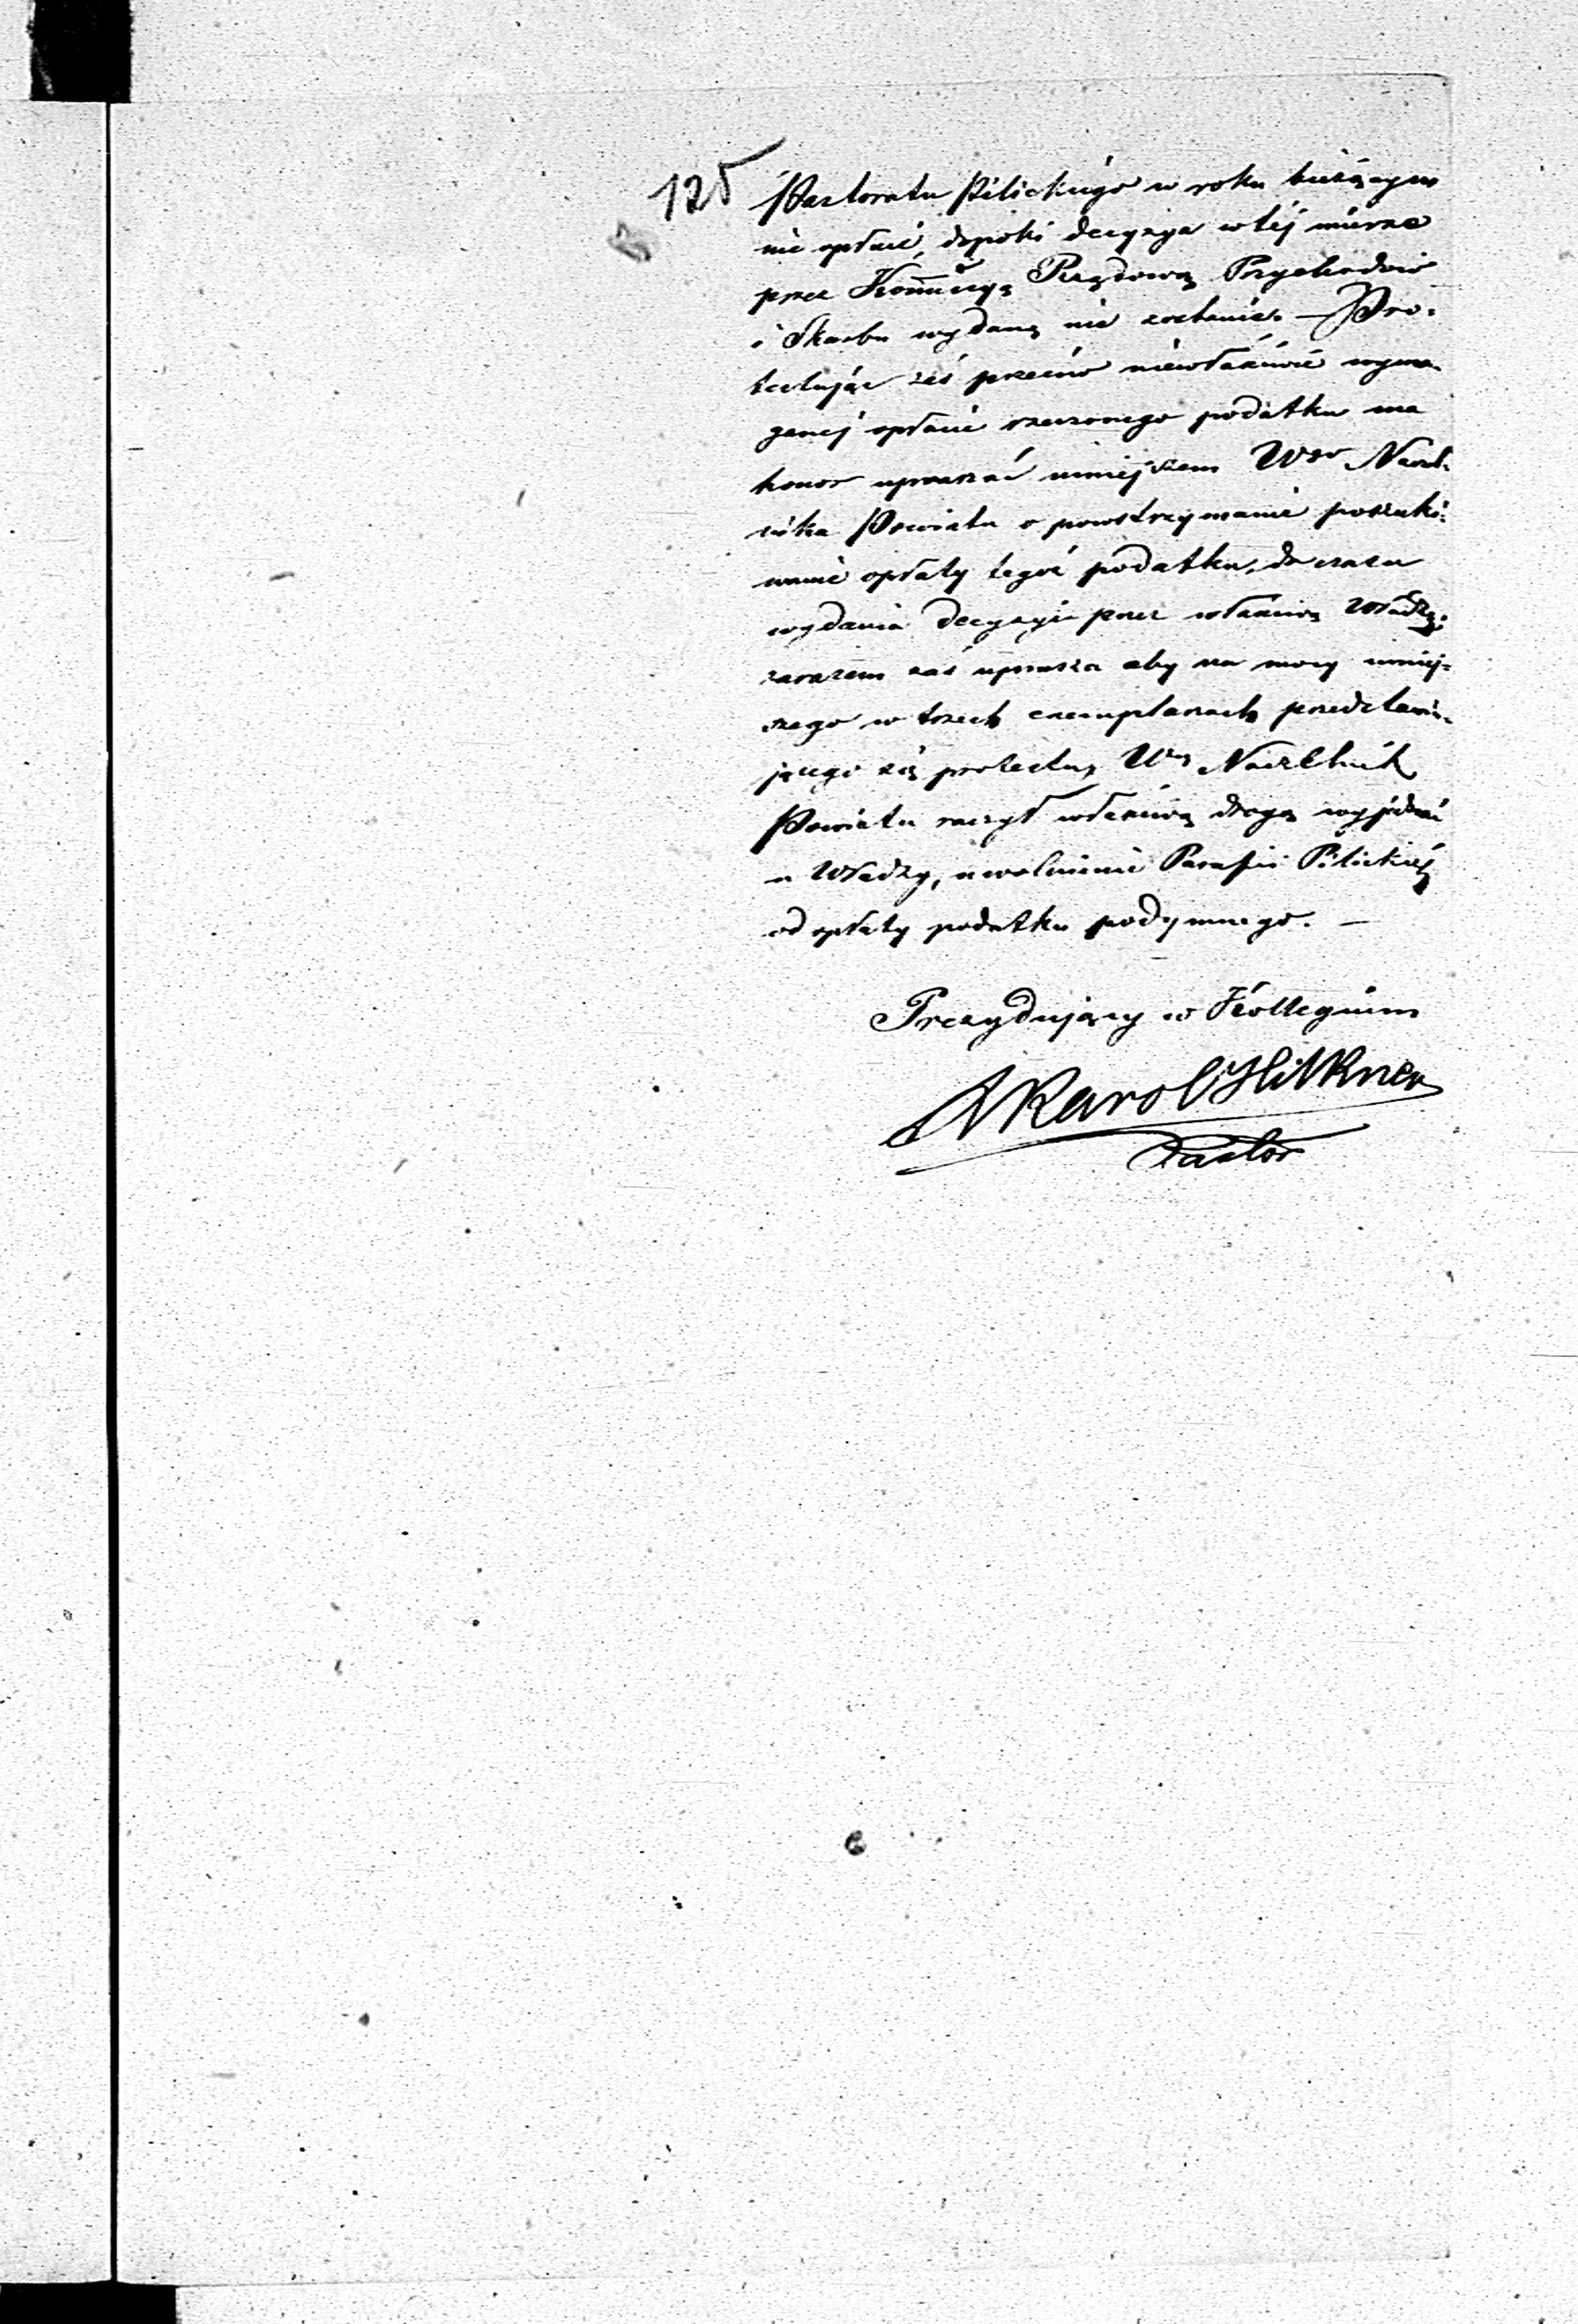 125
Pastoratu Pilickiego w roku bieżącym
nie opłaci, dopóki decyzya w tej mierze
przez Kommissyą Rządową Przychodów
i Skarbu wydaną nie zostanie. — Pro-
testując zaś przeciw niewłaściwie wyma-
ganej opłacie rzeczonego podatku ma
honor upraszać niniejszem Wgo Naczel-
nika Powiatu o powstrzymanie poszuki-
wanie opłaty tegoż podatku, do czasu
wydania decyzyi przez właściwą Władzę;
zarazem zaś uprasza aby na mocy niniej-
szego w trzech exemplarzach przedstawia-
jącego się protestu, Wny Naczelnik
Powiatu raczył właściwą drogą wyjednać
u Władzy, uwolnienie Parafii Pilickiej
od opłaty podatku podymnego. —
Prezydujący w Kollegium
Karol
Pastor